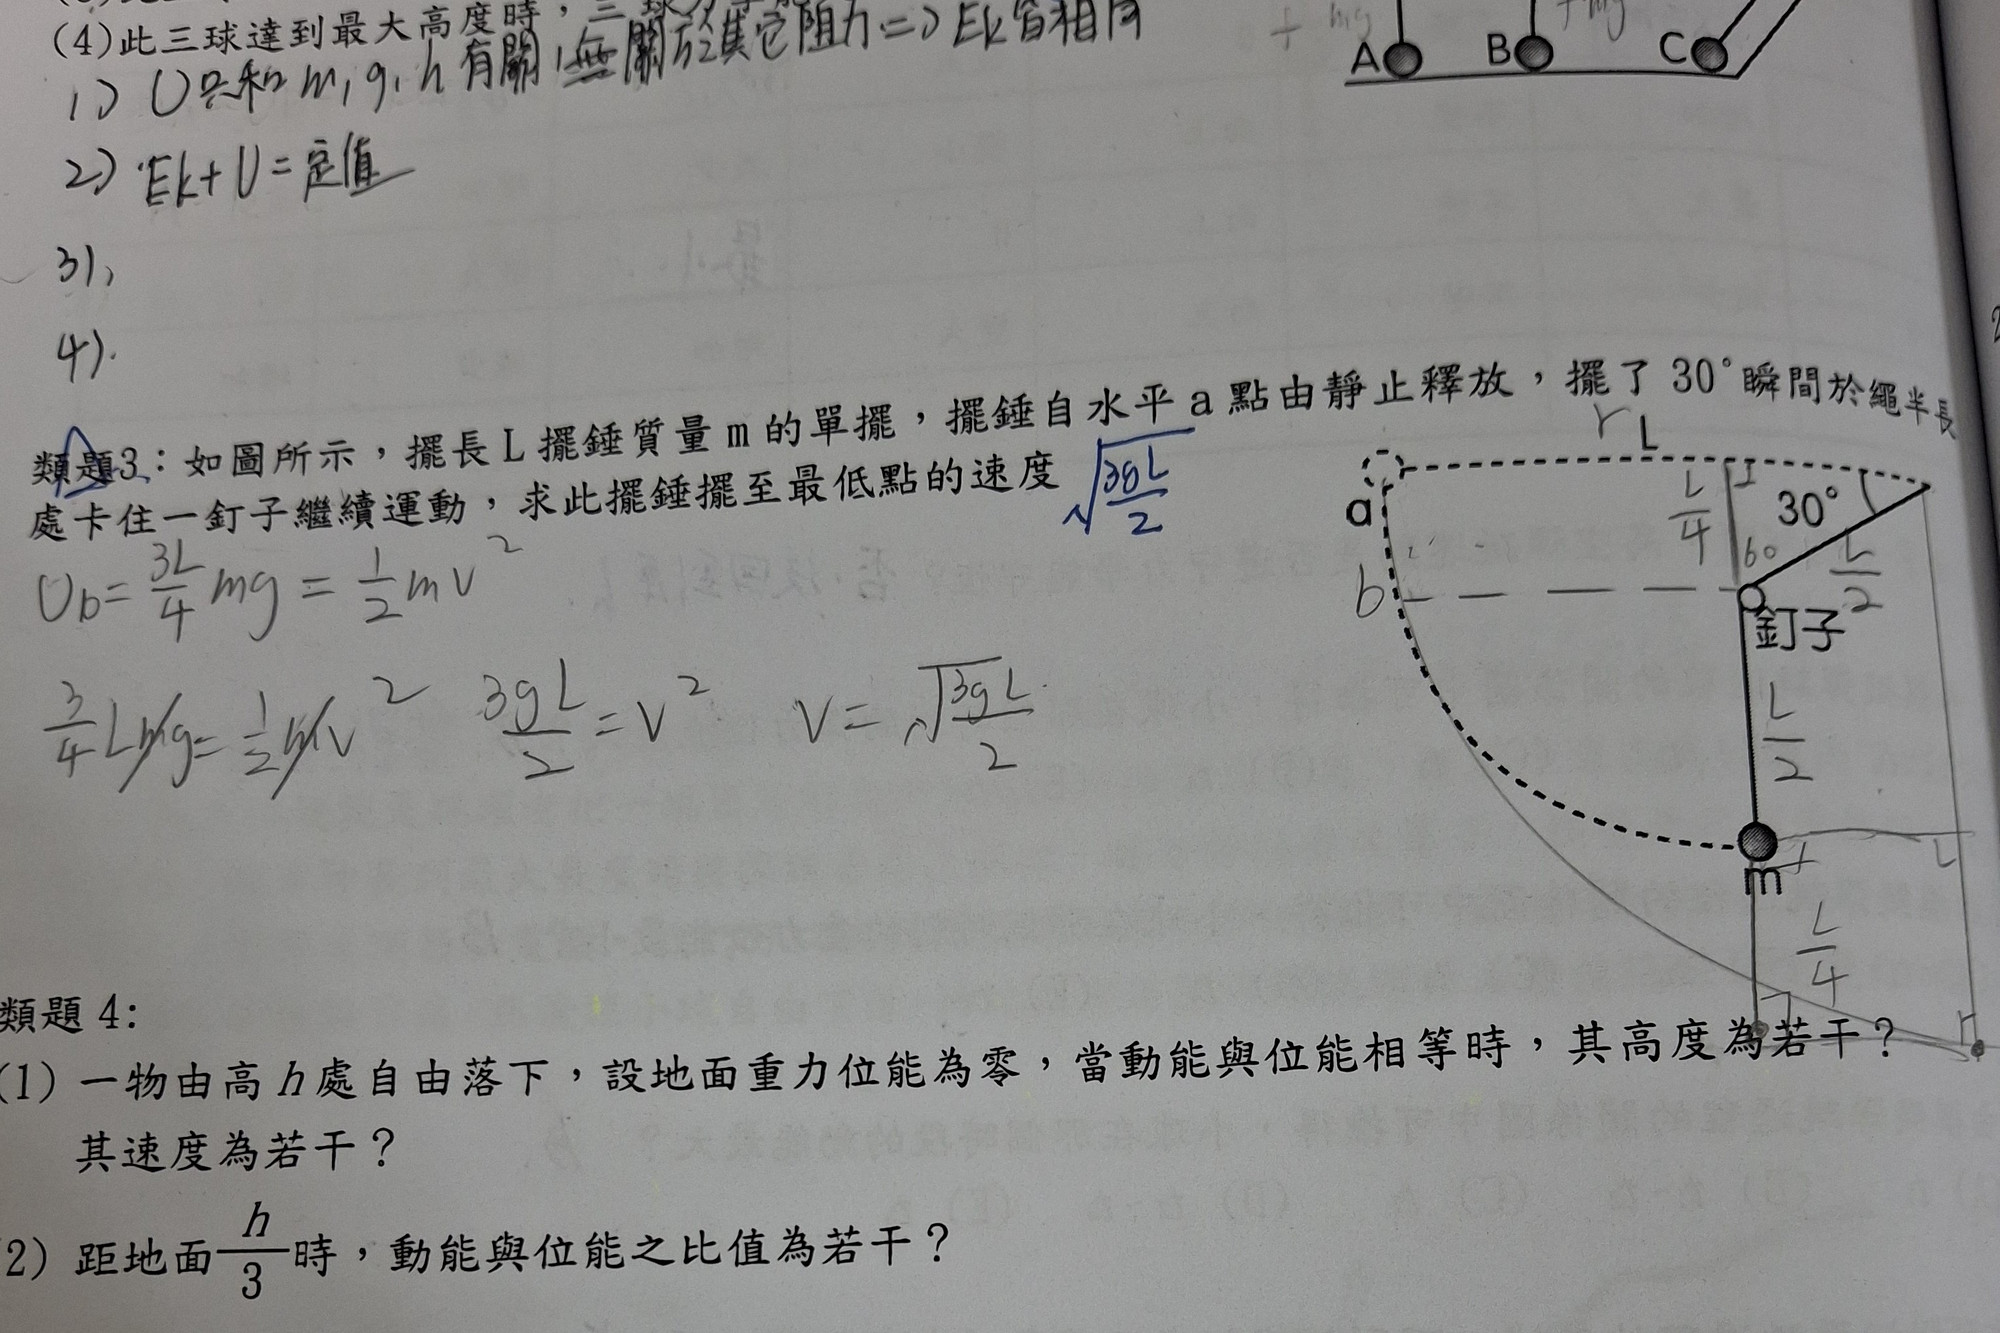 (4)此三球達到最大高度時，三球
1) U只和m,g,h有關,無關於其它阻力=>Ek皆相同
+ mg
+mg
A
B
C
2) Ek+U=定值
3),
4).
類題3：如圖所示，擺長L擺錘質量m的單擺，擺錘自水平a點由靜止釋放，擺了30°瞬間於繩半長
處卡住一釘子繼續運動，求此擺錘擺至最低點的速度 √(3gL/2)
Ub=3L/4 mg=1/2 mv²
3/4 Lmg=1/2 mv² 3gL/2=v² v=√(3gL/2)
r L
a
L/4
30°
60
L/2
b
釘子
L/2
m
L/4
類題4:
(1) 一物由高h處自由落下，設地面重力位能為零，當動能與位能相等時，其高度為若干？
其速度為若干？
2) 距地面h/3時，動能與位能之比值為若干？